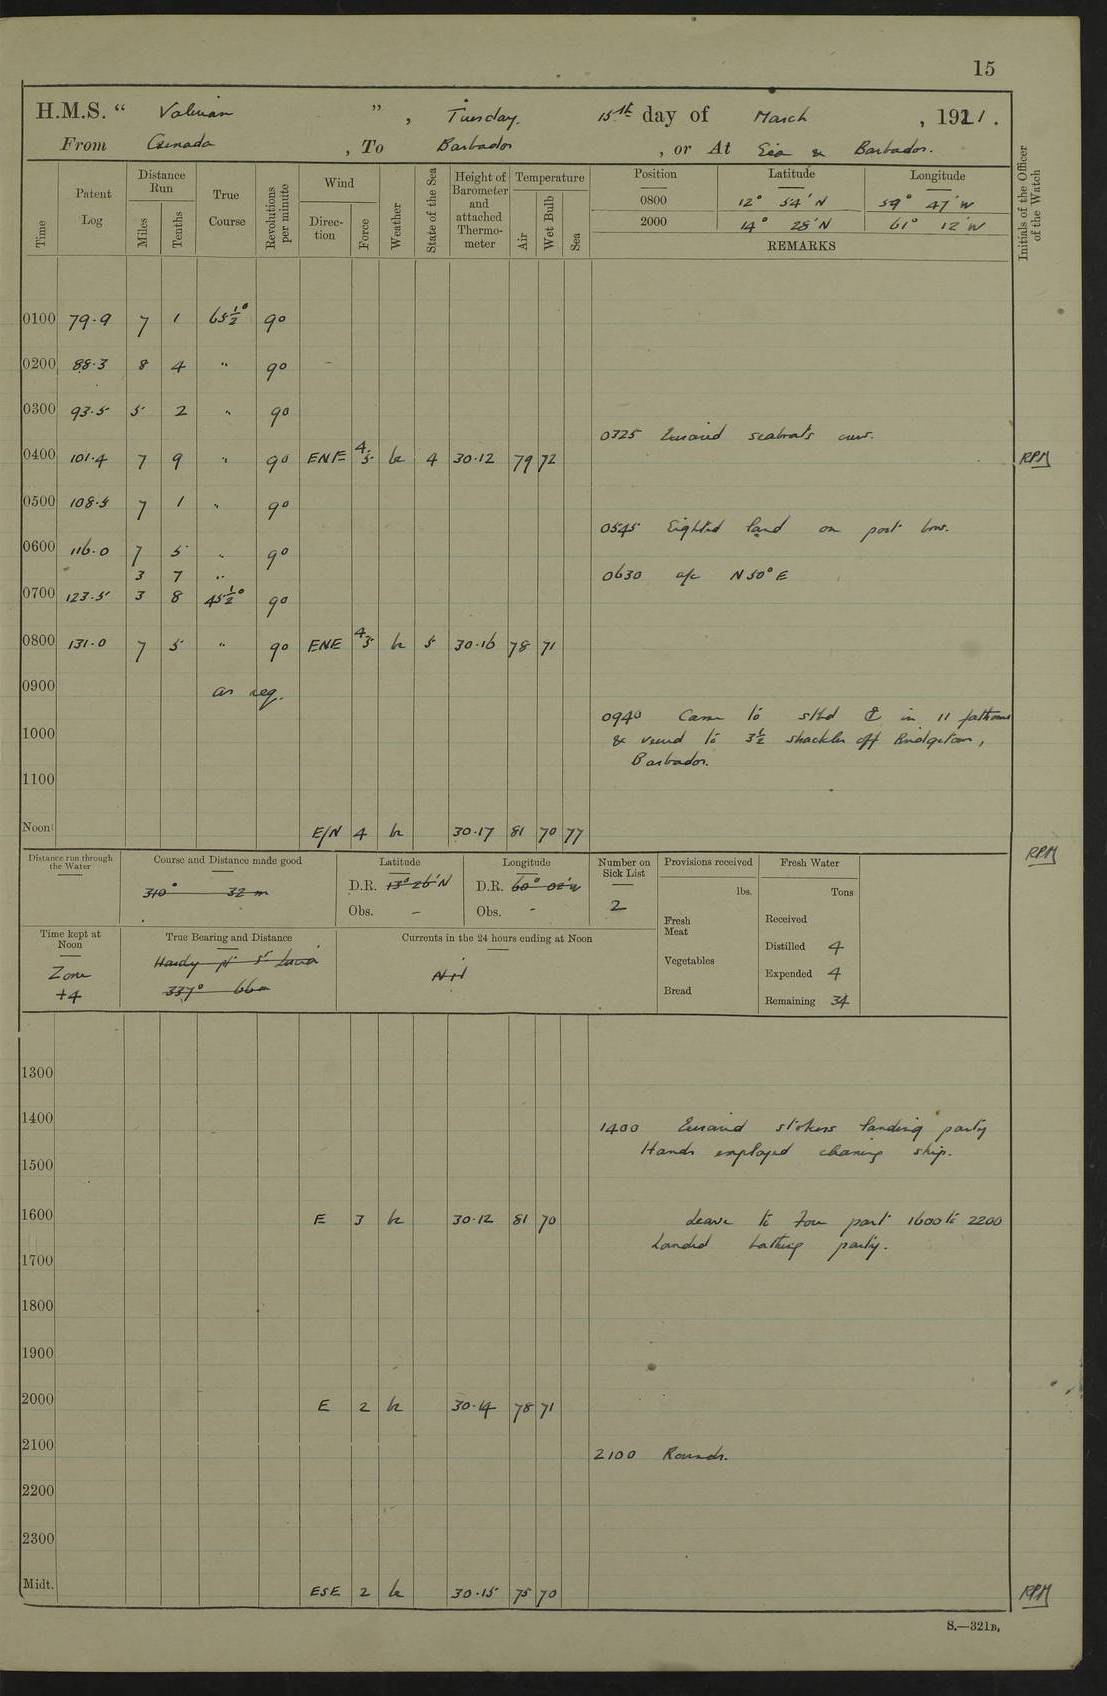 15
H.M.S. “ Valerian ”, Tuesday. 15th day of March, 1921.
From Grenada, To Barbados, or At Sea & Barbados.
Time
Patent Log
Distance Run
Miles
Tenths
True Course
Revolutions per minute
Wind
Direction
Force
Weather
State of the Sea
Height of Barometer and attached Thermometer
Temperature
Air
Wet Bulb
Sea
Position Latitude Longitude
0800 12° 54' N 59° 47' W
2000 14° 28' N 61° 12' W
REMARKS
Initials of the Officer of the Watch
0100 79.9 7 1 65½° 90
0200 88.3 8 4 " 90
0300 93.5 5 2 " 90
0325 Exercised seaboats crews.
0400 101.4 7 9 " 90 ENE 4/5 bc 4 30.12 79 72 RPM
0500 108.5 7 1 " 90
0545 Sighted land on port bow.
0600 116.0 7 5 " 90
3 7 "
0630 a/c N50°E
0700 123.5 3 8 45½° 90
0800 131.0 7 5 " 90 ENE 4/5 bc 5 30.16 78 71
0900 as req.
0940 Came to stbd ⚓ in 11 fathoms
1000
& veered to 3½ shackles off Bridgetown,
Barbados.
1100
Noon E/N 4 bc 30.17 81 70 77
RPM
Distance run through the Water
Course and Distance made good
310° 32 m
Latitude
D.R. 13° 26' N
Obs. -
Longitude
D.R. 60° 02' W
Obs. -
Number on Sick List
2
Provisions received
lbs.
Fresh Meat
Vegetables
Bread
Fresh Water
Tons
Received
Distilled 4
Expended 4
Remaining 34
Time kept at Noon
Zone
+4
True Bearing and Distance
Hardy pt St Lucia
337° 66m
Currents in the 24 hours ending at Noon
Nil
1300
1400
1400 Exercised stokers landing party
Hands employed cleaning ship.
1500
1600 E 3 bc 30.12 81 70 Leave to four part 1600 to 2200
Landed bathing party.
1700
1800
1900
2000 E 2 bc 30.14 78 71
2100
2100 Rounds.
2200
2300
Midt. ESE 2 bc 30.15 75 70 RPM
S.—321B.